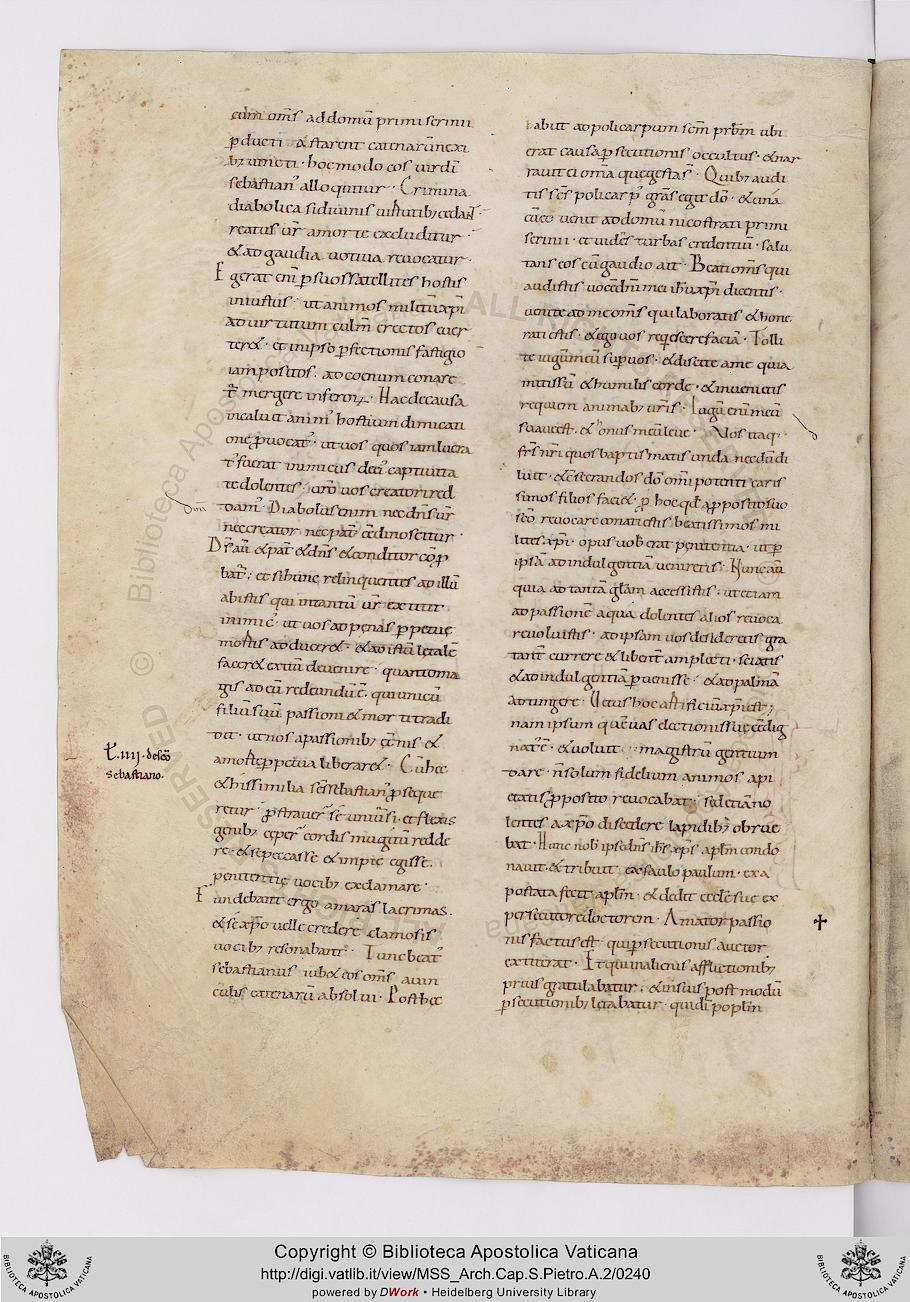 cum om̄s ad domū primi scrinii
ꝑducti · & starent catenarū nexi
bꝫ uincti · hoc modo eos uir dī
sebastian᾿ alloquitur · Crimina
diabolica si diuinis uirtutibꝫ cedant ·
reatus ur̄ a morte excluditur ·
& ad gaudia uotiua reuocatur ·
Egerat eni ꝑ suos satellites hostis
iniustus · ut animos militū xp̄i
ad uirtutum culm̄ erectos euer
ter& · et in ipso ꝑfectionis fastigio
iam positos · ad coenum
mergere inferoꝝ · Hac de causa
incaluit anim᾿ hostium dimicati
one ꝓuocat᾿ · ut uos quos iam lucra
t᾿ fuerat inimicus dei᾿ captiuita
te dolentes · uro uos creatori red
dam᾿ · Diabolus enim nec dn̄s ur̄
nec creator · nec pat᾿ ee dinoscitur ·
Dn̄s aū & pat᾿ & dn̄s & conditor cōꝓ
bat᾿ ; et si hunc relinquentes ad illū
abistis qui in tantū ur̄ extitit
inimic᾿ · ut uos ad penas ꝑpetuę
mortis aducer& · & ad istū letale
facer& exitiū deuenire · quanto ma
gis ad eū redeundū ē · qui unicū
filiū suū passioni & morti tradi
dit · ut nos a passionibꝫ &
a morte ꝑpetua liberar& · Cū hec
& his similia scs sebastian᾿ ꝓseque
retur · ꝓstrauer᾿ se uniuersi · et flexis
genibꝫ ceper᾿ cordis mugitū redde
re · & se peccasse & impie egisse ·
penitentię uocibꝫ exclamare ·
Fundebant ergo amaras lacrimas ·
& se xp̄o uelle credere clamosis
uocibꝫ resonabant᾿ · Tunc beat᾿
sebastianus iub& eos om̄s a uin
culis catenarū absolui · Post hec
L̄ · IIII · de sc̄o
sebastiano ·
abiit ad policarpum scm̄ prb̄m ubi
erat causa ꝑsecutionis occultus · & nar
rauit ei om̄a quę gesta s᾿ · Quibꝫ audi
tis scs̄ policarp᾿ gr̄as egit dō · & unā
cū eo uenit ad domū nicostrati primi
scrinii · et uidēs turbas credentiū · salu
tans eos cū gaudio ait · Beati om̄s qui
audistis uocē dn̄i mei ihū xp̄i dicentis ·
uenite ad me om̄s qui laboratis & hone
rati estis · & ego uos requiescere faciā · Tolli
te iugū meū sup uos · & discite a me quia
mitis sū & humilis corde · & inuenietis
requiem animabꝫ ur̄is · Iugū eni meū
suaue est · & onus meū leue · Nos itaq᾿
fr̄s nr̄i quos baptismatis unda necdū di
luit · & cōsecrandos dō om̄ipotenti caris
simos filios faci& · ꝓ hoc qd̄ a ꝓposito suo
sc̄o reuocare conati estis beatissimos mi
lites xp̄i · opus uob̄ erat penitentia · ut ꝑ
ipsā ad indulgentiā ueniretis · Nunc aū
quia ad tantā gl̄am accessistis · ut etiam
ad passionē a qua dolentes alios reuoca
re uoluistis · ad ipsam uos desideretis gra
tant᾿ currere & libent᾿ amplecti · sciatis
& ad indulgentiā ꝑuenisse · & ad palmā
adtingere · Vetus hoc artificiū xp̄i est ;
nam ipsum quē uas electionis suę ee dig
nat᾿ ē · & uoluit · magistrū gentium
dare · n̄ solum fidelium animos a pi
etatis ꝓposito reuocabat · sed etiā no
lentes a xp̄o discedere lapidibꝫ obrue
bat · Hunc nob̄ ipse dn̄s ih̄s xp̄s aplm̄ condo
nauit · & tribuit ex saulo paulum · ex a
postata fecit aplm̄ · & dedit ecclesię ex
persecutore doctorem · Amator passio
nis factus est qui ꝑsecutionis auctor
extiterat · Et qui in alienis afflictionibꝫ
prius gratulabatur · & in suis post modū
ꝑsecutionibꝫ lętabatur ·
Copyright © Biblioteca Apostolica Vaticana
http://digi.vatlib.it/view/MSS_Arch.Cap.S.Pietro.A.2/0240
powered by DWork • Heidelberg University Library
BIBLIOTECA APOSTOLICA VATICANA
BIBLIOTECA APOSTOLICA VATICANA